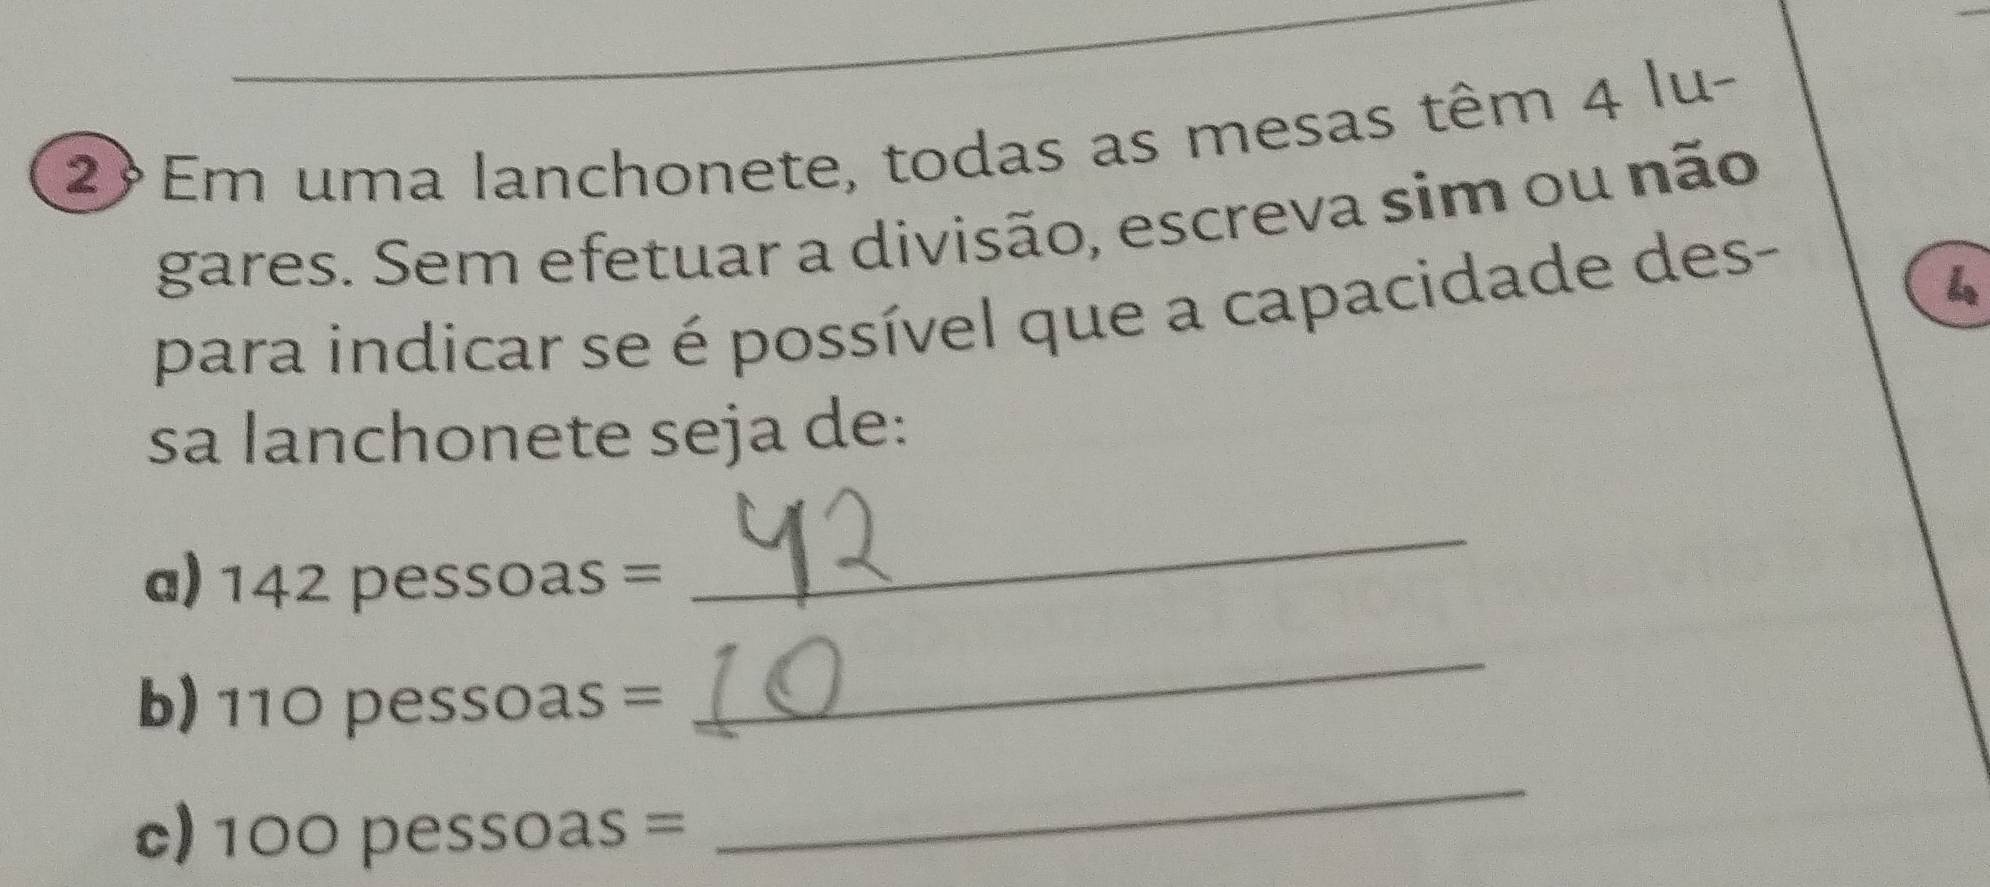 2 Em uma lanchonete, todas as mesas têm 4 lu-
gares. Sem efetuar a divisão, escreva sim ou não
para indicar se é possível que a capacidade des-
sa lanchonete seja de:
a) 142 pessoas = 42
b) 110 pessoas = 10
c) 100 pessoas =
4